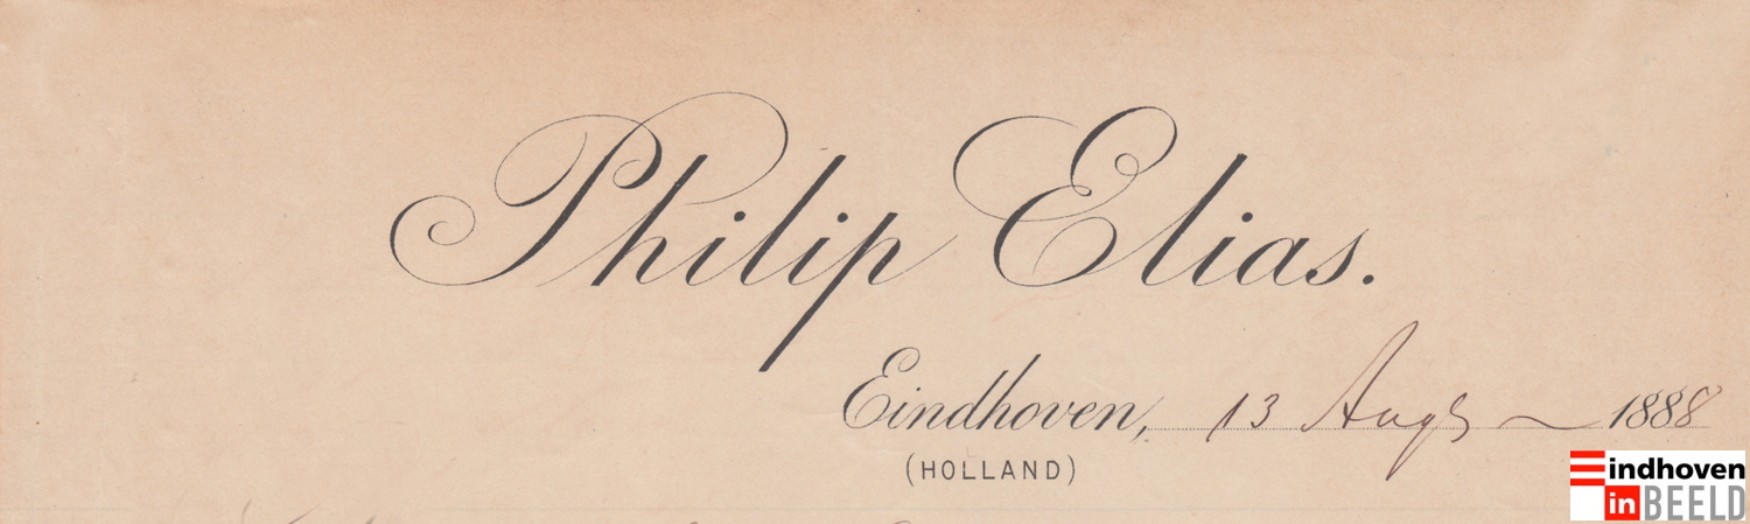 Philip Elias.
Eindhoven, 13 Augs 1888
(HOLLAND)
indhoven
in BEELD